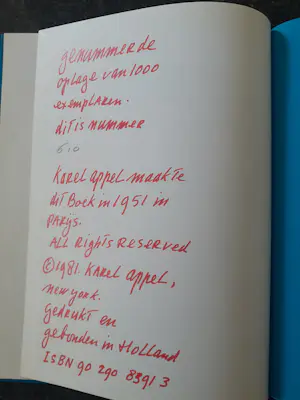 genummerde
oplage van 1000
exemplaren.
dit is nummer
610
Karel appel maakte
dit Boek in 1951 in
PARijs.
ALL Rights Reserved
©1981. Karel appel,
new york.
Gedrukt en
gebonden in Holland
ISBN 90 290 8391 3